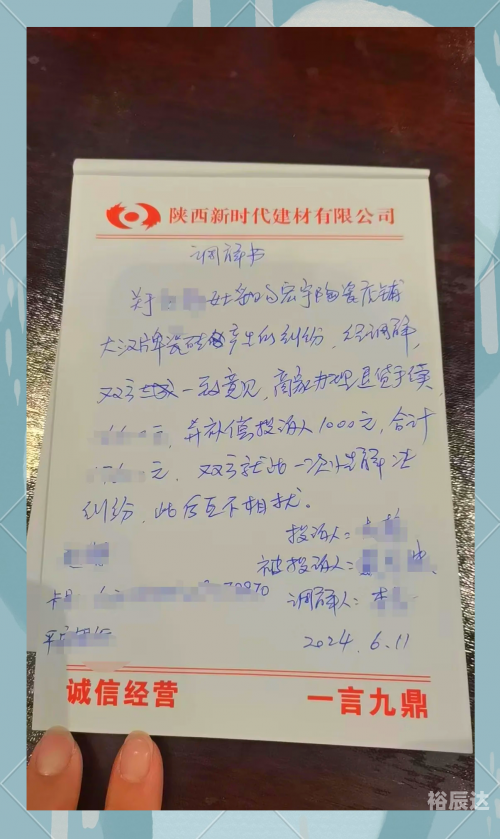 陕西新时代建材有限公司
调解书
关于 女士购宏宇陶瓷店铺
大汉牌瓷砖产生的纠纷，经调解，
双方 一致意见，商家办理退货手续，
元，并补偿投诉人1000元，合计
元，双方就此一次性解决
纠纷，此后互不相扰。
投诉人：
被投诉人：
卡号 70970
调解人：李
平安银行
2024.6.11
诚信经营 一言九鼎
裕辰达